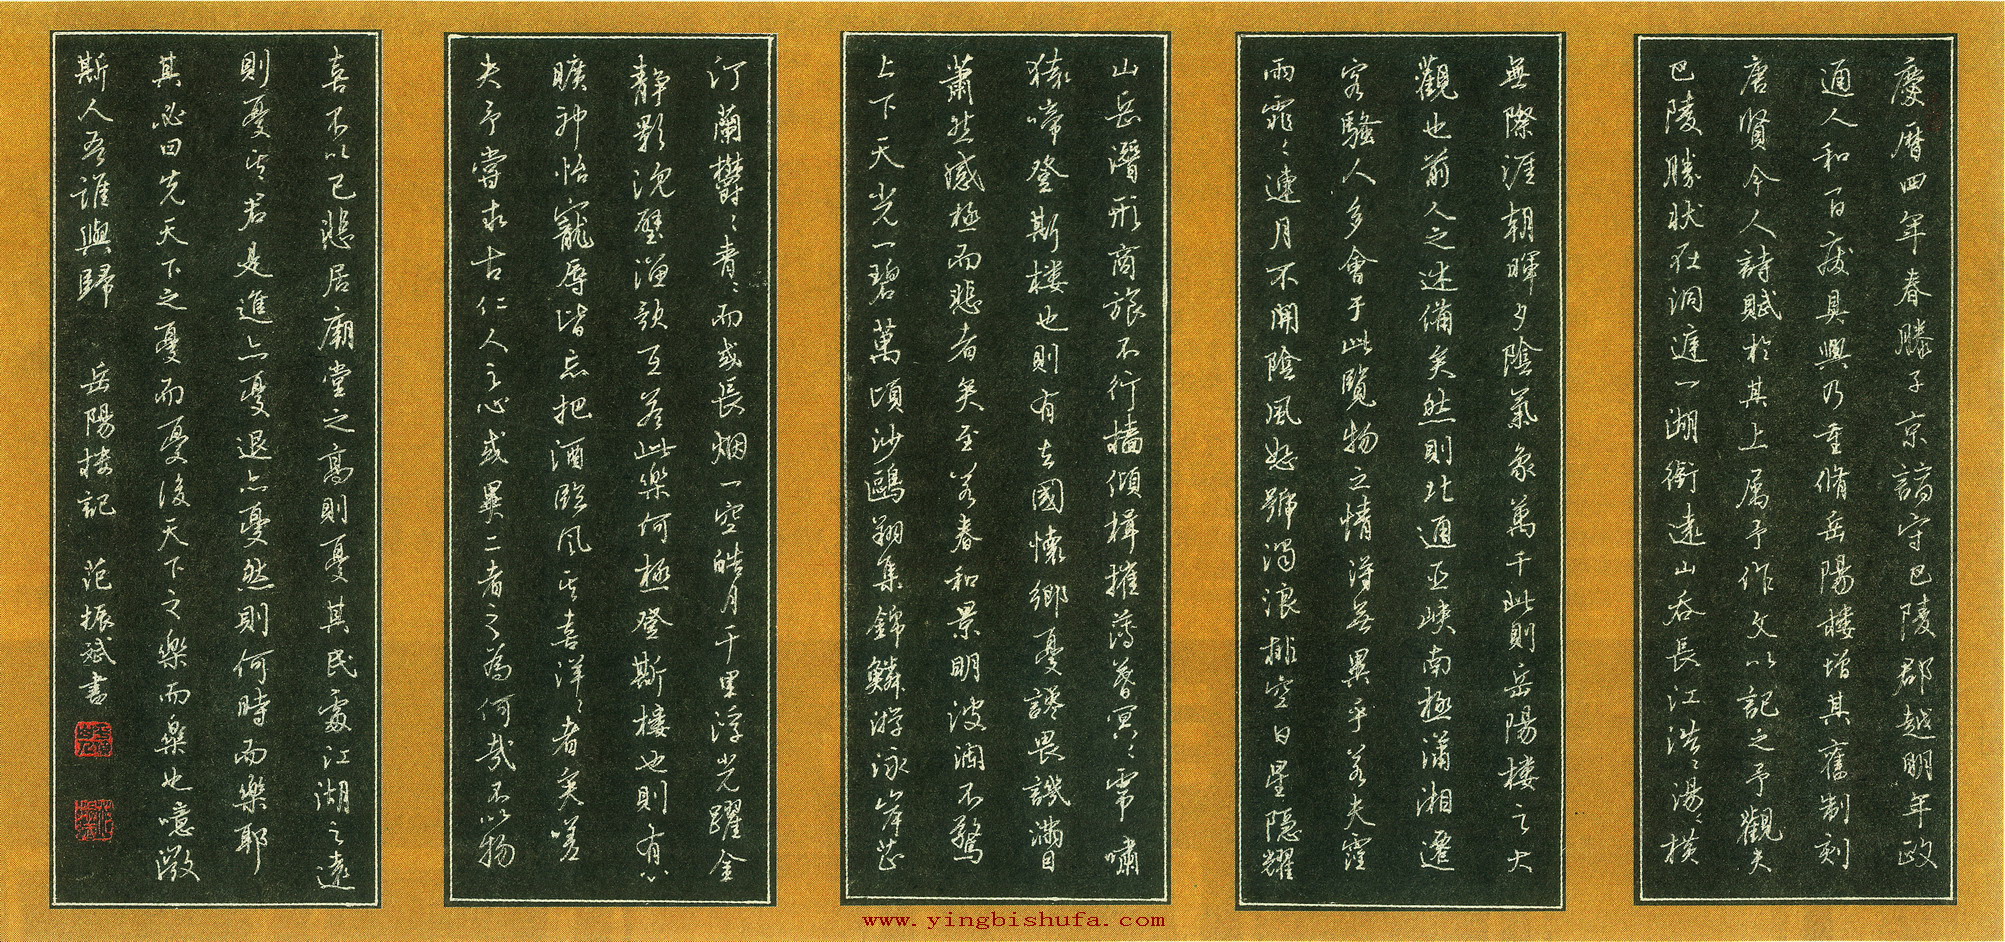 慶曆四年春滕子京謫守巴陵郡越明年政
通人和百廢具興乃重脩岳陽樓增其舊制刻
唐賢今人詩賦於其上属予作文以記之予觀夫
巴陵勝狀在洞庭一湖銜遠山吞長江浩〻湯〻橫
無際涯朝暉夕陰氣象萬千此則岳陽樓之大
觀也前人之述備矣然則北通巫峽南極瀟湘遷
客騷人多會于此覽物之情得無異乎若夫霪
雨霏〻連月不開陰風怒號濁浪排空日星隱耀
山岳潛形商旅不行檣傾楫摧薄暮冥〻虎嘯
猿啼登斯樓也則有去國懷鄉憂讒畏譏滿目
蕭然感極而悲者矣至若春和景明波瀾不驚
上下天光一碧萬頃沙鷗翔集錦鱗游泳岸芷
汀蘭欝〻青〻而或長烟一空皓月千里浮光躍金
静影沉璧漁歌互答此樂何極登斯樓也則有心
曠神怡寵辱皆忘把酒臨风其喜洋〻者矣嗟
夫予嘗求古仁人之心或異二者之為何哉不以物
喜不以己悲居廟堂之高則憂其民處江湖之遠
則憂其君是進亦憂退亦憂然則何時而樂耶
其必曰先天下之憂而憂後天下之樂而樂也噫微
斯人吾誰與歸 岳陽樓記 范振斌書
www.yingbishufa.com